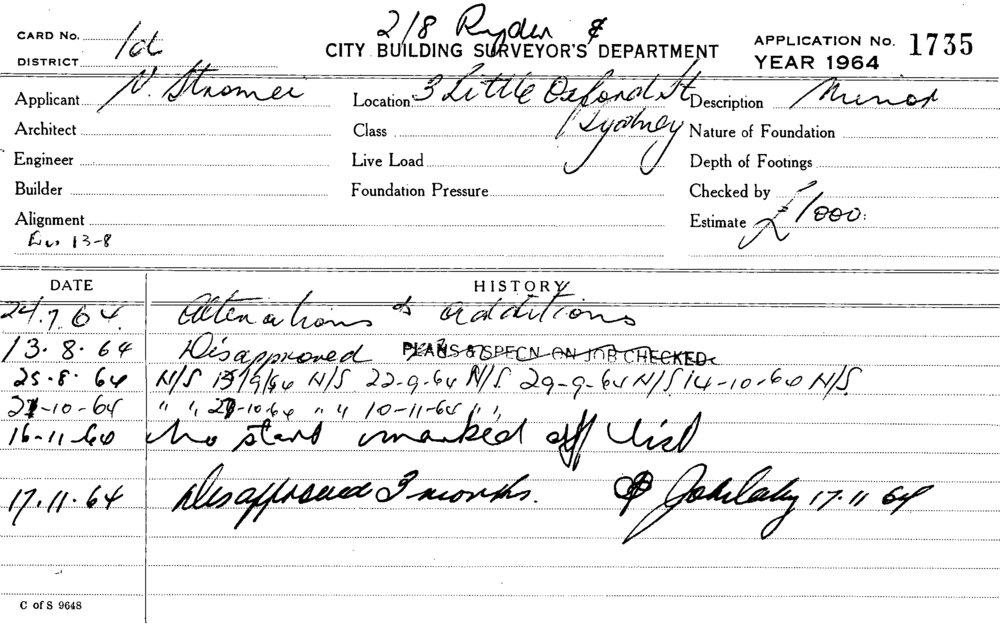 2/8 Ryder &
CARD No. 1d CITY BUILDING SURVEYOR'S DEPARTMENT APPLICATION No. 1735
DISTRICT YEAR 1964
Applicant N. Stromei Location 3 Little Oxford St Description Minor
Architect Class Sydney Nature of Foundation
Engineer Live Load Depth of Footings
Builder Foundation Pressure Checked by
Alignment Estimate £1000:
13-8
DATE HISTORY
24.7.64. Alterations & additions
13.8.64 Disapproved PLANS & SPECN ON JOB CHECKED.
25.8.64 N/S 15/9/64 N/S 22-9-64 N/S 29-9-64 N/S 14-10-64 N/S
27-10-64 " " 27-10-64 " " 10-11-64 " "
16-11-64 No start marked off list
17.11.64 Disapproved 3 months. 17.11 64
C of S 9648